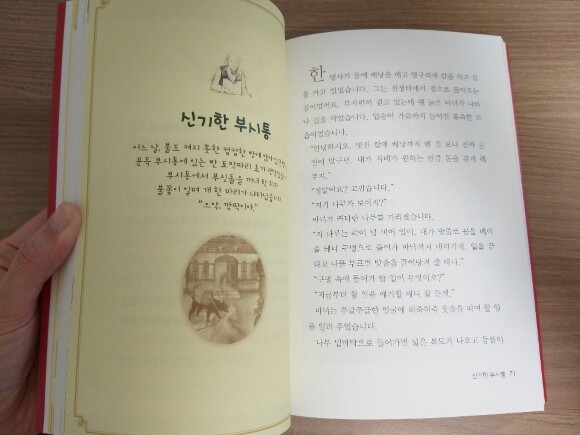 신기한 부시통
어느 날, 불도 켜지 못한 컴컴한 방에 앉아
문득 부시통에 있는 반 토막짜리 초가
부시통에서 부싯돌을 꺼내
불꽃이 일며 개 한 마리가 나타났습니다.
"으악, 깜짝이야."
한 병사가 등에 배낭을 메고 옆구리에 칼을 차고 길
을 가고 있었습니다. 그는 전쟁터에서 집으로 돌아오는
길이었어요. 부지런히 걷고 있는데 웬 늙은 마녀가 나타
나 길을 막았습니다. 입술이 가슴까지 늘어진 흉측한 모
습이었습니다.
"안녕하시오, 멋진 칼에 배낭까지 멘 걸 보니 진짜 군
인이 맞구먼. 내가 자네가 원하는 만큼 돈을 갖게 해
주지."
"정말이요? 고맙습니다."
"저기 나무가 보이지?"
마녀가 커다란 나무를 가리켰습니다.
"저 나무는 속이 텅 비어 있어. 내가 밧줄로 몸을 매어
줄 테니 구멍으로 들어가 바닥까지 내려가게. 일을 끝
내고 나를 부르면 밧줄을 끌어당겨 줄 테니."
"구멍 속에 들어가 할 일이 무엇이오?"
"지금부터 할 일을 얘기할 테니 잘 듣게."
마녀는 쭈글쭈글한 얼굴에 히죽히죽 웃음을 띠며 할 일
을 일러 주었습니다.
나무 밑바닥으로 들어가면 넓은 복도가 나오고 등불이
신기한 부시통 71